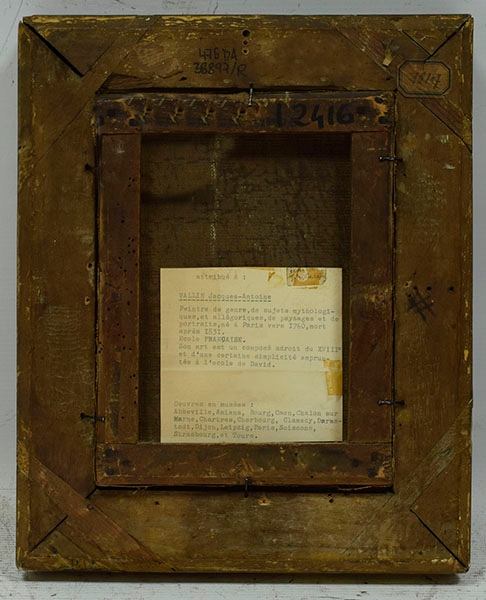 478 DA
38897/R
12416
attribué à :
VALLIN Jacques-Antoine
Peintre de genre,de sujets mythologi-
ques,et allégoriques,de paysages et de
portraits,né à Paris vers 1760,mort
après 1831.
Ecole FRANCAISE.
Son art est un composé adroit du XVIIIº
et d'une certaine simplicité emprun-
tée à l'école de David.
Oeuvres en musées :
Abbeville,Amiens, Bourg,Caen,Chalon sur
Marne,Chartres,Cherbourg, Clamecy,
Dijon,Leipzig,Paris,Soissons,
Strasbourg,et Tours.
#